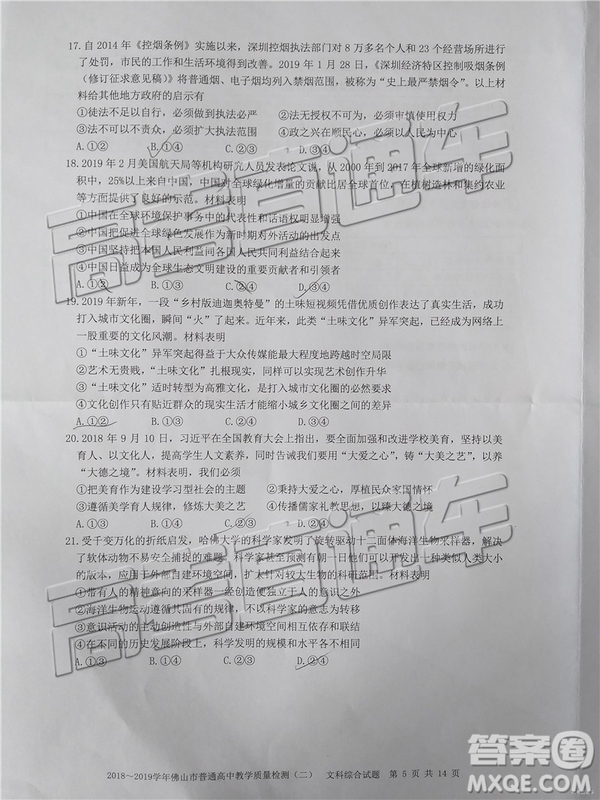 17.自 2014 年《控烟条例》实施以来，深圳控烟执法部门对 8 万多名个人和 23 个经营场所进行
了处罚，市民的工作和生活环境得到改善。2019 年 1 月 28 日，《深圳经济特区控制吸烟条例
（修订征求意见稿）》将普通烟、电子烟均列入禁烟范围，被称为“史上最严禁烟令”。以上材
料给其他地方政府的启示有
①徒法不足以自行，必须做到执法必严 ②法无授权不可为，必须审慎使用权力
③法不可以不责众，必须扩大执法范围 ④政之兴在于顺民心，必须以人民为中心
A.①② B.①④ C.②③ D.③④
18.2019 年 2 月美国航天局等机构研究人员发表论文说，从 2000 年到 2017 年全球新增的绿化面
积中，25%以上来自中国，中国对全球绿化增量的贡献比居全球首位，在植树造林和集约农业
等方面提供了良好的示范。材料表明
①中国在全球环境保护事务中的代表性和话语权明显增强
②中国把促进全球绿色发展作为新时代对外活动的出发点
③中国坚持把本国人民利益同各国人民共同利益结合起来
④中国日益成为全球生态文明建设的重要贡献者和引领者
A.①② B.①④ C.②③ D.③④
19.2019 年新年，一段“乡村版迪迦奥特曼”的土味短视频凭借优质创作表达了真实生活，成功
打入城市文化圈，瞬间“火”了起来。近年来，此类“土味文化”异军突起，已经成为网络上
一股重要的文化风潮。材料表明
①“土味文化”异军突起得益于大众传媒能最大地跨越时空局限
②艺术无贵贱，“土味文化”扎根现实，同样可以实现艺术创作升华
③“土味文化”适时转型为高雅文化，是打入城市文化圈的必然要求
④文化创作只有贴近群众的现实生活才能缩小城乡文化圈之间的差异
A.①② B.①③ C.②④ D.③④
20.2018 年 9 月 10 日，习近平在全国教育大会上指出，要全面加强和改进学校美育，坚持以美
育人、以文化人，提高学生人文素养，同时告诫我们要用“大爱之心”，铸“大美之艺”，以养
“大德之境”。材料表明，我们必须
①把美育作为建设学习型社会的主题 ②秉持大爱之心，厚植民众家国情怀
③遵循美育育人规律，修炼大美之艺 ④传播儒家礼教思想，以臻大德之境
A.①③ B.①④ C.②③ D.②④
21.受千变万化的折纸启发，哈佛大学的科学家发明了旋转驱动十二面体海洋生物采样器，解决
了软体动物不易安全捕捉的难题。科学家甚至预测有朝一日他们可以发明一种类似人类大小
的版本，应用于自建环境空间，扩大针对较大生物的科研范围。材料表明
①带有人的精神意向的采样器一经创造便独立于人的意识之外
②海洋生物运动遵循其固有的规律，不以科学家的意志为转移
③意识活动的主动创造性与外部自建环境空间有直接联系
④在不同的历史发展阶段上，科学发明的规模和水平各不相同
A.①③ B.①④ C.②③ D.②④
2018～2019学年佛山市普通高中教学质量检测（二） 文科综合试题 第 5 页 共 14 页
高考直通车
高考直通车
高考直通车
答案圈